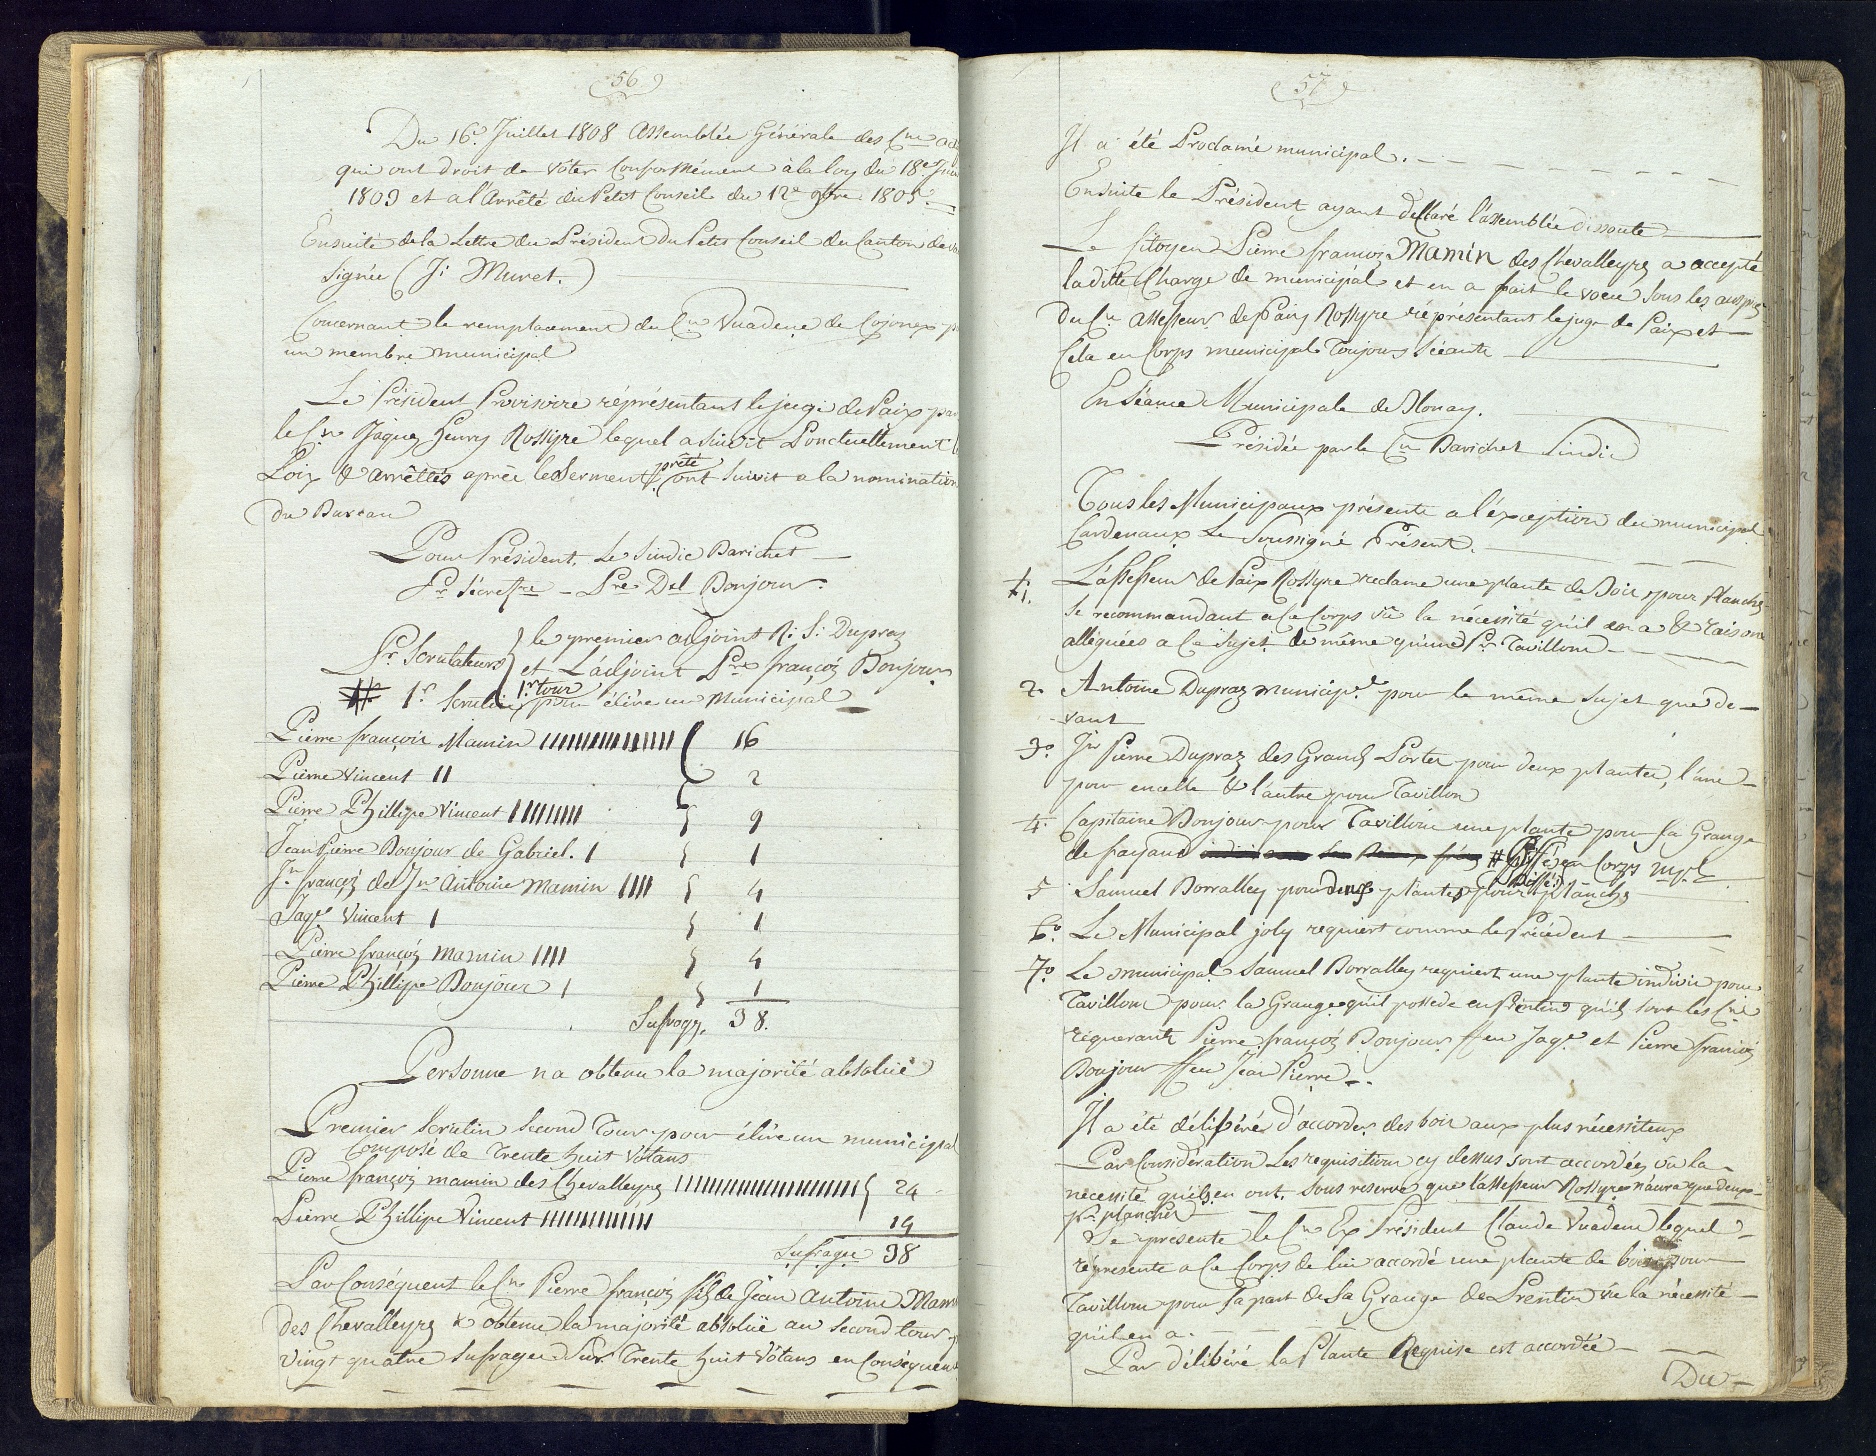 56
Du 16e. Juillet 1808 Assemblée Générale des Cne
qui ont droit de vôter Conformément à la loy du 18e Juin
1803 et a l'Arrêté du Petit Conseil du 12e 9bre 1805.
Ensuite de la Lettre du Président Du Petit Conseil du Canton de
Signée (J: Muret.)
Concernant le remplacement du Cn Vuadene de Cojonex p
un membre municipal
Le Président Provisoire réprésentant le juge de Paix par
le Cn Jâques Henry Rossyre lequel a suivit Ponctuellement
Loix & Arrêttés aprèe le Serment prêté ont suivit a la nomination
du Bureau
Pour Président. Le Sindic Barichet
Pr Sécrettre – Pre Del Bonjour.
Pr Scrutateurs le premier adjoint N: S: Dupraz
et L'adjoint Pre françois Bonjour
1r Scrutin 1r tour pour élire un Municipal
Pierre françois Mamin 16
Pierre Vincent 2
Pierre Phillipe Vincent 9
Jean Pierre Bonjour de Gabriel. 1
Jn françois de Jn Antoine Mamin 4
Jaqe Vincent 1
Pierre françois Mamin 4
Pierre Phillipe Bonjour 1
Sufrages. 38.
Personne na obtenu la majorité absolüe
Premier Scrutin Second Tour pour élire un municipal
Composé de Trente huit Vôtans
Pierre françois mamin des Chevalleyres 24
Pierre Phillipe Vincent 14
Sufrages 38
Par Conséquent le Cne Pierre françois fils de Jean Antoine Mam
des Chevalleyres a obtenu la majorité absolüe au Second tour
Vingt quatre Sufrages Sur Trente huit Vôtans en Conséquen
57
Il a été Proclamé municipal.
Ensuite le Président ayant déclaré l'assemblée dissoute
Le Citoyen Pierre françois Mamin des Chevalleyres a accepté
la ditte Charge de municipal et en a fait le voeu Sous les auspices
du Cn Assesseur de Paix Rossyre réprésentant le juge de Paix et
Cela en Corps municipal Toujours Séante
En Séance Municipale de Blonay.
Présidée par le Cn Barichet Sindic
Tous les Municipaux présents a l'éxception du municipal
Cardenaux Le Soussigné Présent.
1. L'assesseur de Paix Rossyre reclame une plante de Bois pour planches
Se recommandant a Ce Corps vû la nécessité qu'il en a & raisons
alléguées a Ce Sujet de même qu'une Pr Tavillons
2. Antoine Dupraz Municipal pour le même Sujet que de-
vant
3o. Jn Pierre Dupraz des Grands Portes pour deux plantes, l'une
pour encelle & l'autre pour Tavillon
4. Capitaine Bonjour pour Tavillons une plante pour Sa Grange
de fayaux Corps mpl
5 Samuel Borralley pour deux plantes pour planches
6o. Le Municipal joly requiert comme le Précédent
7o. Le municipal Samuel Borralley requiert une plante indivis pour
Tavillons pour la Grange qu'il possede en Prentin qu'ils sont les Cns
réquérants Pierre françois Bonjour ffeu Jaqe et Pierre françois
Bonjour ffeu Jean Pierre.
Il a été délibéré d'accorder des bois aux plus nécessiteux
Par Considération Les requisitions cy dessus sont accordées vû la
nécessité qu'ils en ont. sous reserve que l'assesseur Rossyre n'aura que deux
pr plancher
Se présente le Cn Ex Président Claude Vuadens lequel
réprésente a Ce Corps de lui accordé une plante de bois pour
Tavillons pour Sa part de Sa Grange de Prentin vû la nécessité
qu'il en a.
Par délibéré la Plante Requise est accordée
Du